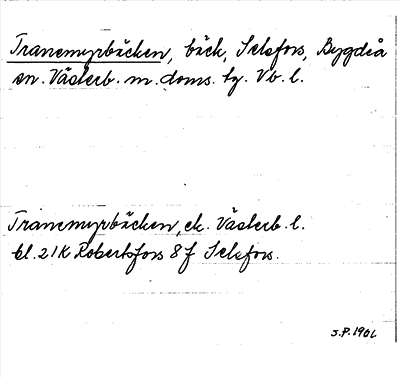 Tranemyrbäcken, bäck, Selsfors, Bygdeå
sn. Västerb. m. doms. tg. Vb. l.
Tranemyrbäcken, ek. Västerb. l.
bl. 21K Robertsfors 8 f Selsfors.
J.P. 1901